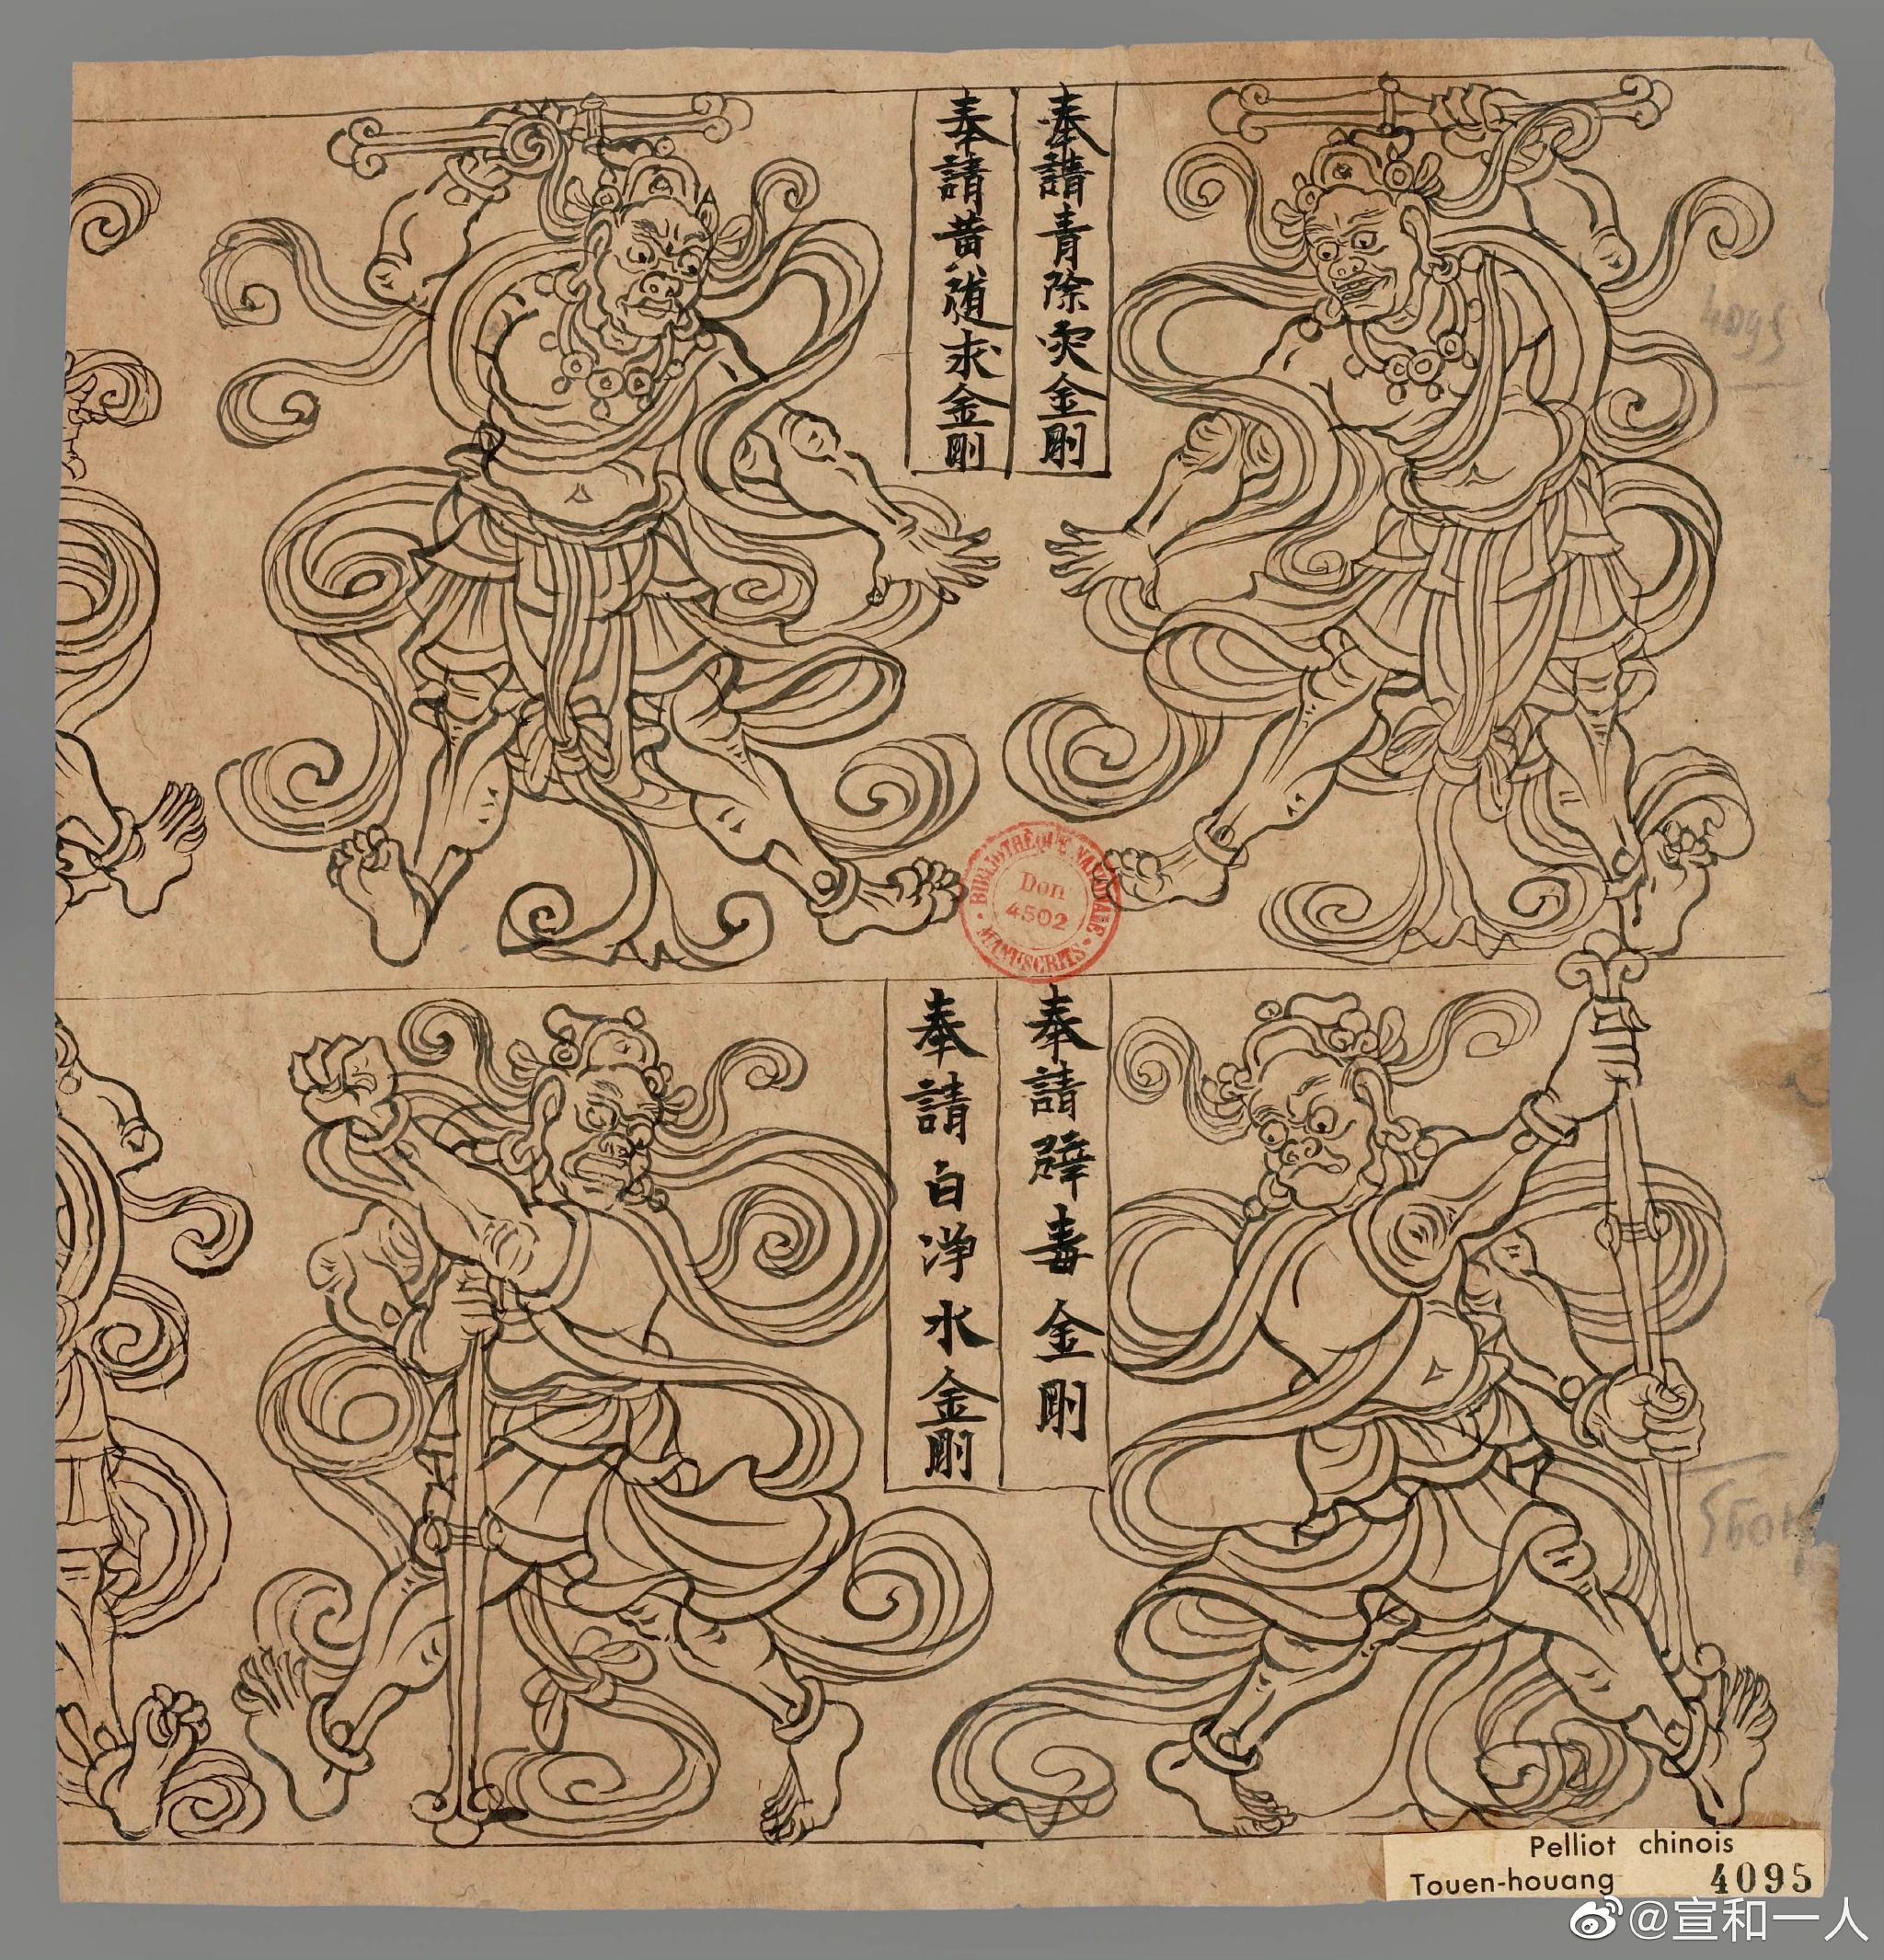 奉請青除灾金剛
奉請黃随求金剛
奉請辟毒金剛
奉請白淨水金剛
4095
BIBLIOTHÈQUE NATIONALE
Don
4502
MANUSCRITS
Pelliot chinois
Touen-houang 4095
@宣和一人